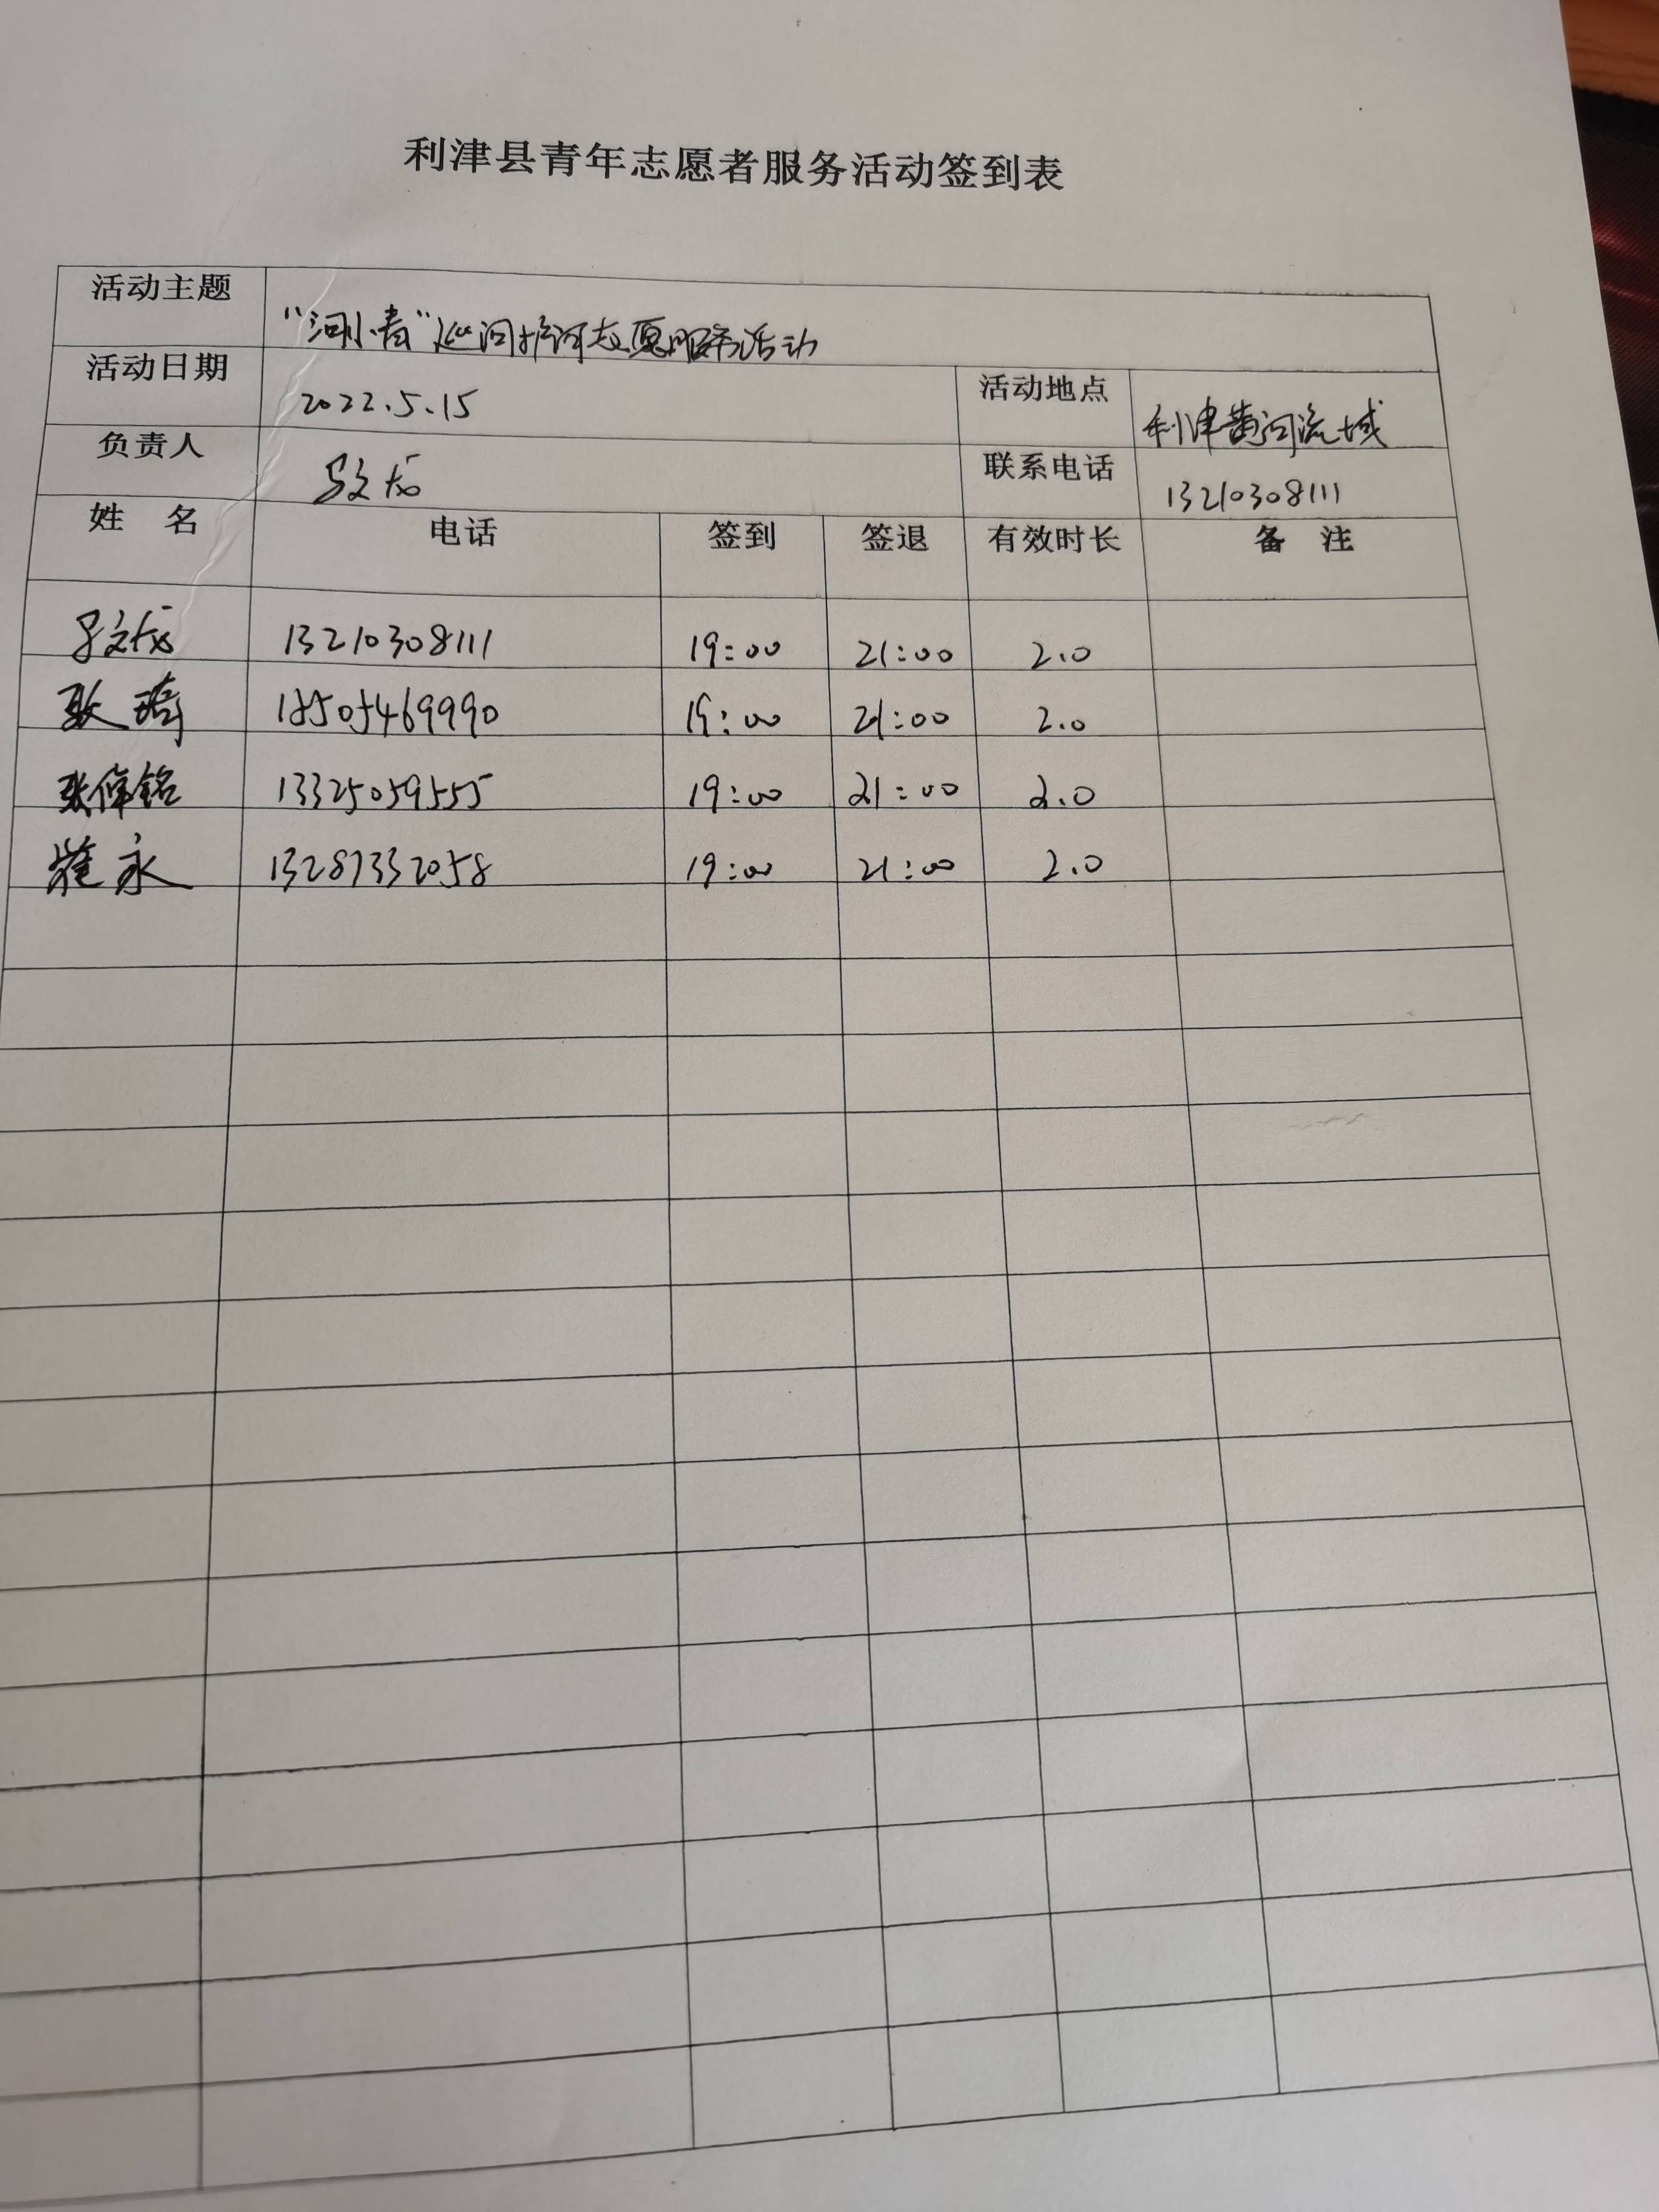 利津县青年志愿者服务活动签到表
活动主题 “河小青”巡河护河志愿服务活动
活动日期 2022.5.15 活动地点 利津黄河流域
负责人 联系电话 13210308111
姓 名 电话 签到 签退 有效时长 备 注
13210308111 19:00 21:00 2.0
张琦 18505469990 19:00 21:00 2.0
张伟铭 13325059555 19:00 21:00 2.0
永 13287332058 19:00 21:00 2.0